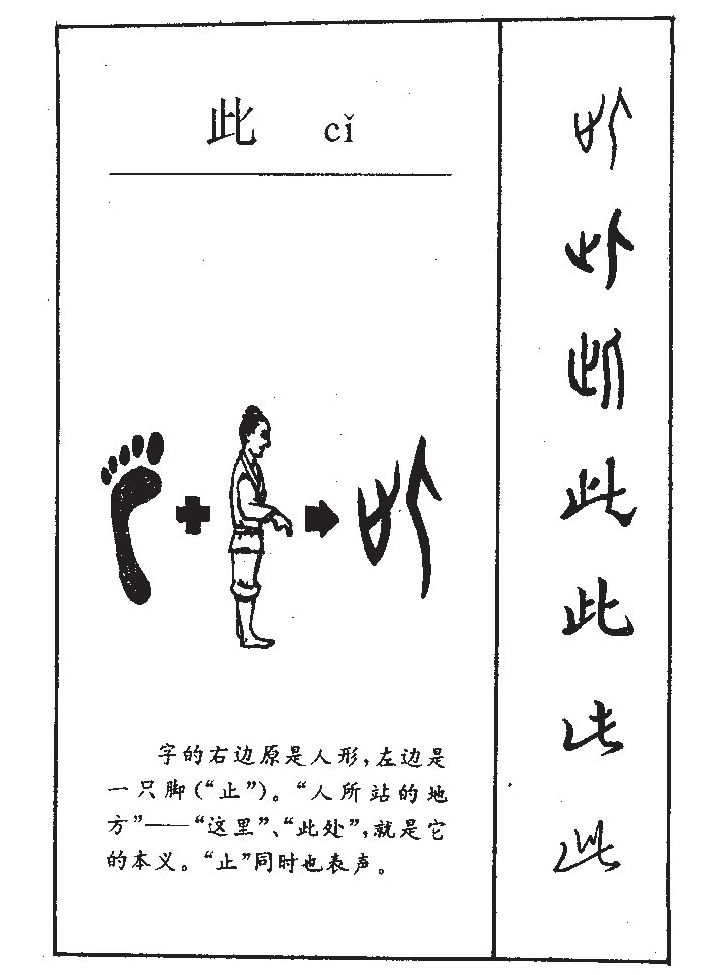 此 cǐ
字的右边原是人形，左边是
一只脚（“止”）。“人所站的地
方”——“这里”、“此处”，就是它
的本义。“止”同时也表声。
此
此
此
此
此
此
此